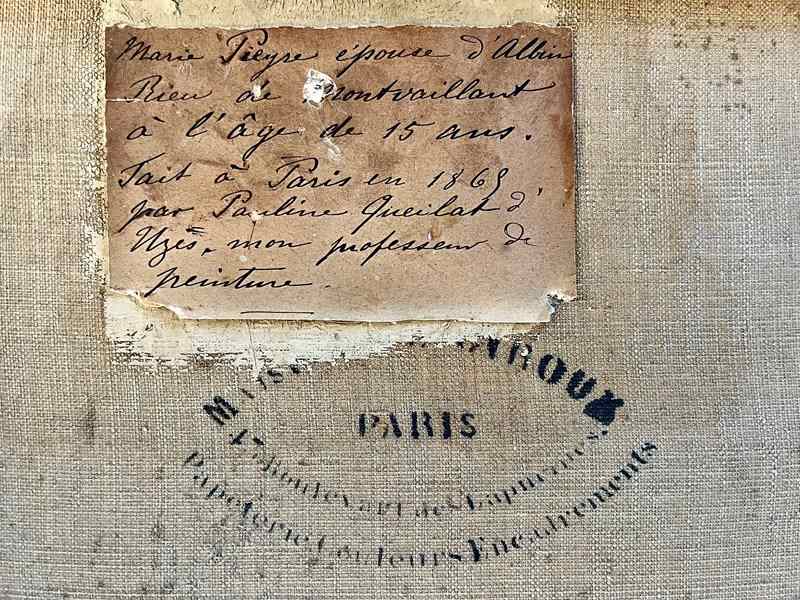 Marie Pieyre épouse d'Albin
Rieu de Montvaillant
à l'âge de 15 ans.
Fait à Paris en 1869
par Pauline Queilat d'
Uzès, mon professeur de
peinture.
PARIS
boulevart des Capucines
Papeterie Couleurs Encadrements